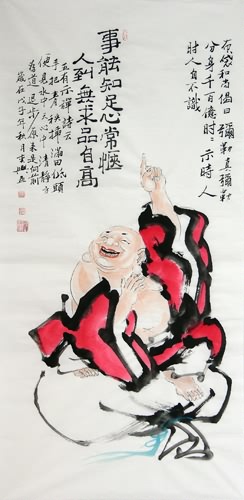 布袋和尚偈曰彌勒真彌勒
分身千百億時時示時人
時人自不識
事能知足心常惬
人到無求品自高
又有示禪詩云
手把青秧插滿田低頭
便見水中天心中清靜方
為道退步原來是向前
歲在戊子年秋月